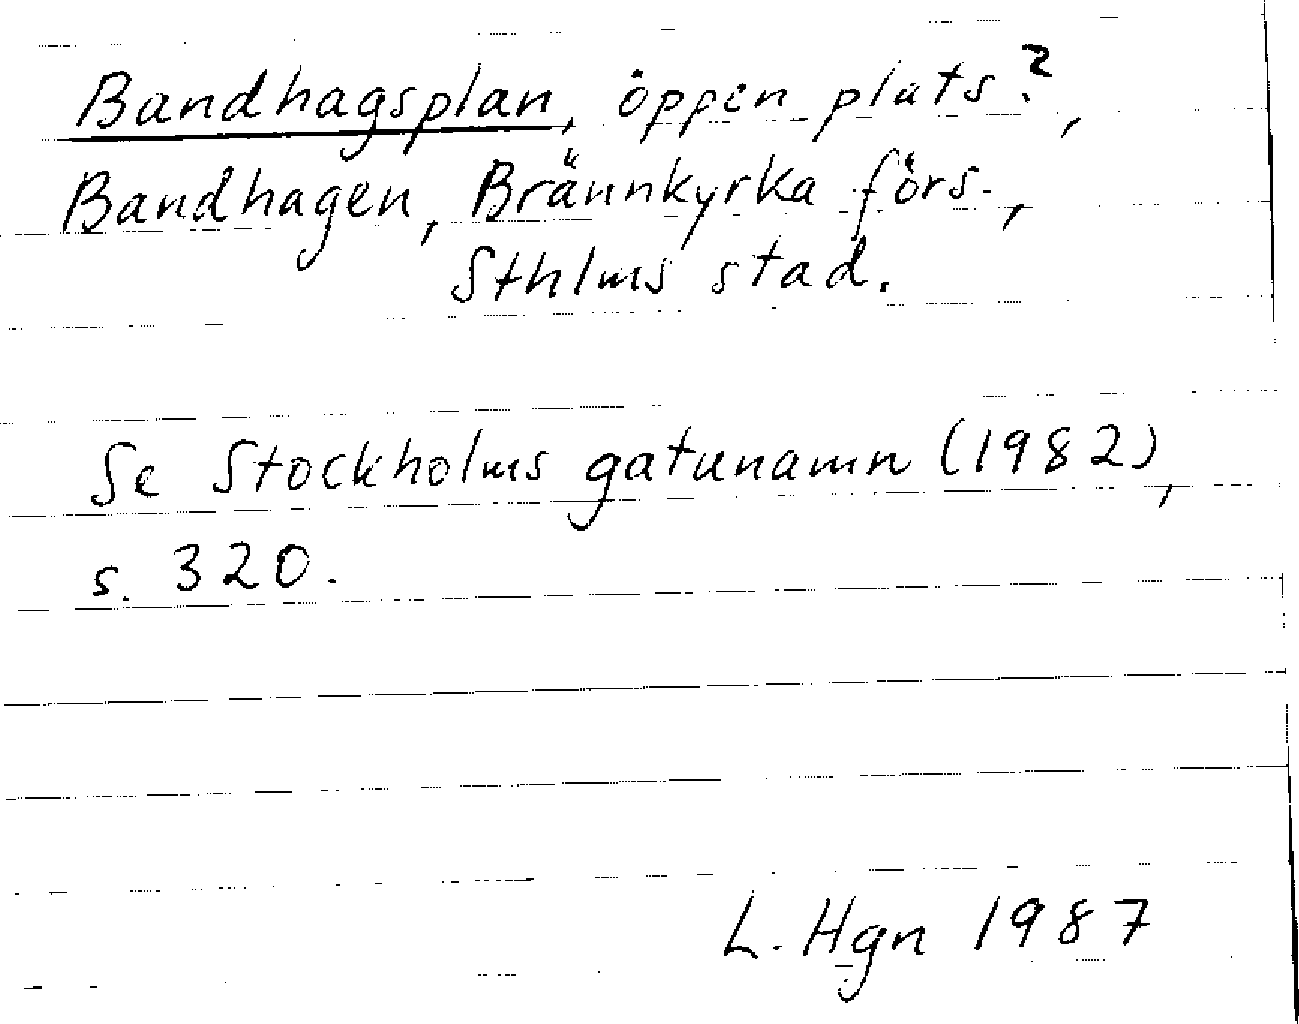 Bandhagsplan, öppen plats?,
Bandhagen, Brännkyrka förs.,
Sthlms stad.
Se Stockholms gatunamn (1982),
s. 320.
L. Hgn 1987